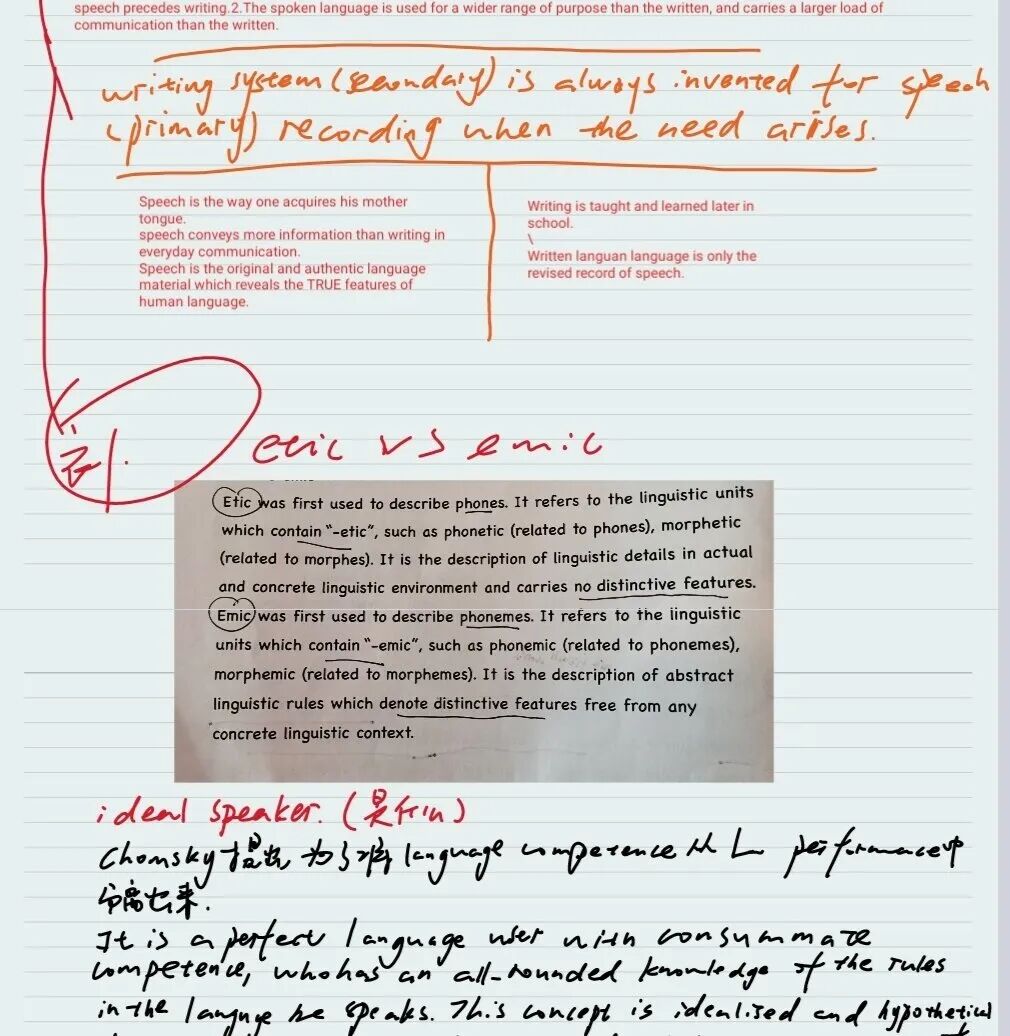 speech precedes writing.2.The spoken language is used for a wider range of purpose than the written, and carries a larger load of
communication than the written.
writing system (secondary) is always invented for speech
(primary) recording when the need arises.
Speech is the way one acquires his mother
tongue.
speech conveys more information than writing in
everyday communication.
Speech is the original and authentic language
material which reveals the TRUE features of
human language.
Writing is taught and learned later in
school.
\
Written languan language is only the
revised record of speech.
etic vs emic
Etic was first used to describe phones. It refers to the linguistic units
which contain "-etic", such as phonetic (related to phones), morphetic
(related to morphes). It is the description of linguistic details in actual
and concrete linguistic environment and carries no distinctive features.
Emic was first used to describe phonemes. It refers to the linguistic
units which contain "-emic", such as phonemic (related to phonemes),
morphemic (related to morphemes). It is the description of abstract
linguistic rules which denote distinctive features free from any
concrete linguistic context.
ideal speaker. (是
Chomsky 提出 为了将 language competence 从 L performance中
分离出来.
It is a perfect language user with consummate
competence, who has an all-rounded knowledge of the rules
in the languge he speaks. This concept is idealised and hypothetical